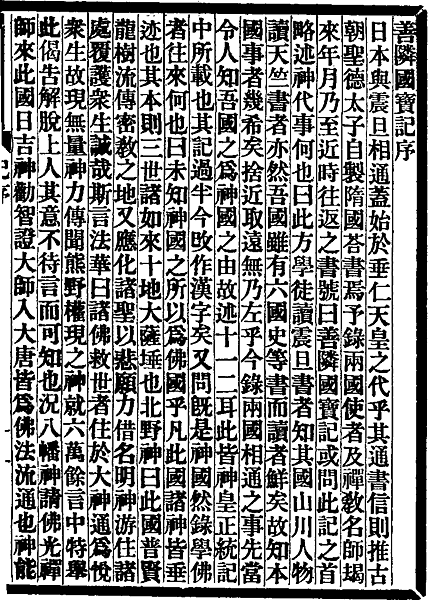 善隣國寶記序
日本與震旦相通蓋始於垂仁天皇之代乎其通書信則推古
朝聖德太子自製隋國荅書焉予錄兩國使者及禪敎名師竭
來年月乃至近時往返之書號曰善隣國寶記或問此記之首
略述神代事何也曰此方學徒讀震旦書者知其國山川人物
讀天竺書者亦然吾國雖有六國史等書而讀者鮮矣故知本
國事者幾希矣捨近取遠無乃左乎今錄兩國相通之事先當
令人知吾國之爲神國之由故述十一二耳此皆神皇正統記
中所載也其記過半今改作漢字矣又問既是神國然錄學佛
者往來何也曰未知神國之所以爲佛國乎凡此國諸神皆垂
迹也其本則三世諸如來十地大薩埵也北野神曰此國普賢
龍樹流傳密敎之地又應化諸聖以悲願力借名明神游住諸
處覆護衆生誠哉斯言法華曰諸佛救世者住於大神通爲悅
衆生故現無量神力傳聞熊野權現之神就六萬餘言中特舉
此偈告解脫上人其意不待言而可知也況八幡神請佛光禪
師來此國日吉神勸智證大師入大唐皆爲佛法流通也神能